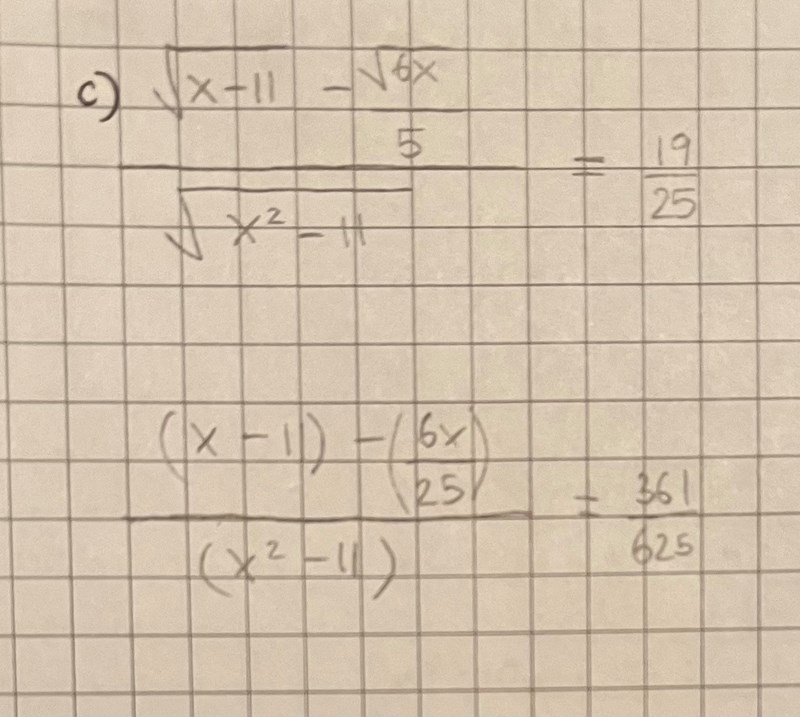 c) (√(x-11) - √(6x)/5) / √(x² - 11) = 19/25
((x - 11) - (6x/25)) / (x² - 11) = 361/625